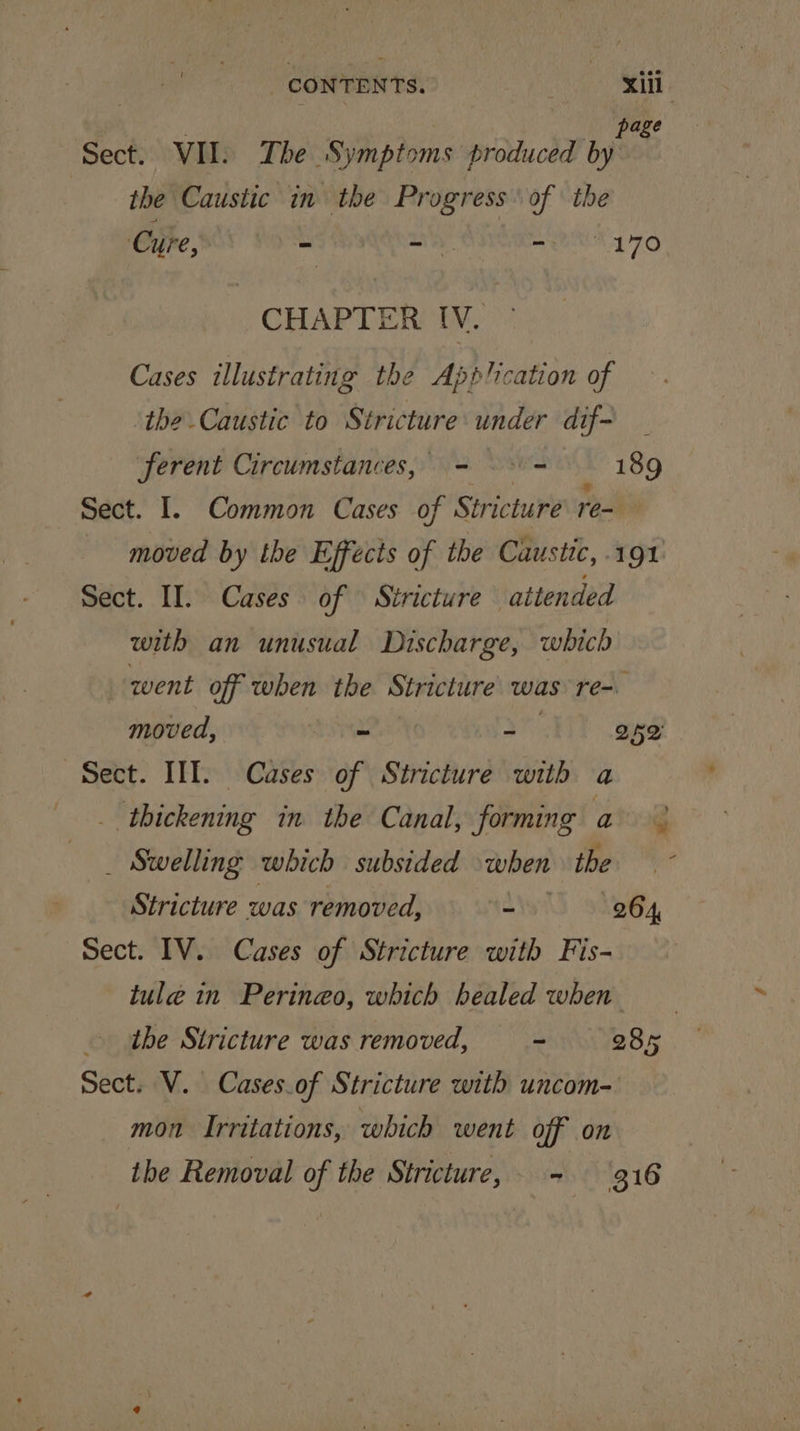 CONTENTS. xiii
page
Sect. VII. The Symptoms produced by
the Caustic in the Progress of the
Cure, - - - 170
CHAPTER IV.
Cases illustrating the Application of
the Caustic to Stricture under dif-
ferent Circumstances, - - 189
Sect. I. Common Cases of Stricture re-
moved by the Effects of the Caustic, 191
Sect. II. Cases of Stricture attended
with an unusual Discharge, which
went off when the Stricture was re-
moved, - - 252
Sect. III. Cases of Stricture with a
thickening in the Canal, forming a
Swelling which subsided when the
Stricture was removed, - 264
Sect. IV. Cases of Stricture with Fis-
tulæ in Perinæo, which healed when
the Stricture was removed, - 285
Sect. V. Cases of Stricture with uncom-
mon Irritations, which went off on
the Removal of the Stricture, - 316